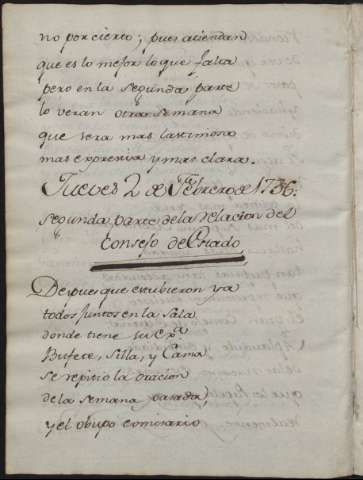 no por cierto; pues atiendan
que es lo mejor lo que falta
pero en la segunda parte
lo veran otra semana
que sera mas lastimosa
mas expresiva y mas clara.
Jueves 2 de Febrero de 1736.
segunda parte de la relacion del
Consejo de Estado
Despues que estubieron ya
todos juntos en la sala
donde tiene su Exª
Bufete, Silla, y Cama
se repitio la oracion
de la semana pasada,
y el obispo comisario